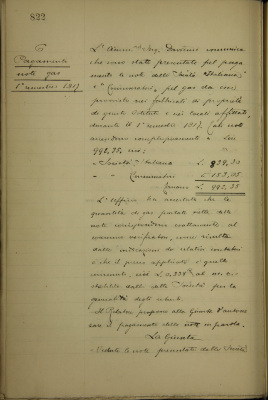 822
5
Pagamento
note gas
1° semestre 1917
L' Ing. Damioni comunica
che sono state presentate pel paga
mento le note delle "Società Italiana"
e "Consumatori", pel gas da esse
provvisto nei fabbricati di proprietà
di questo Istituto e nei locali affittati,
durante il 1° semestre 1917. Tali note
ascendono complessivamente a Lire
992,35, cioè:
- "Società" Italiana L. 839,30
- " Consumatori L. 153,05
Sommano L. 992,35
L'Ufficio ha accertato che le
quantità di gas portate nelle dette
note corrispondono esattamente al
consumo verificatosi, come risulta
dalle indicazioni dei relativi contatori
e che il prezzo applicato è quello
convenuto, cioè L. al mc.
stabilito dalle dette Società per la
generalità degli utenti.
Il Relatore propone alla Giunta d'autoriz
zare il pagamento delle note in parola.
La Giunta
- Vedute le note presentate dalle Società